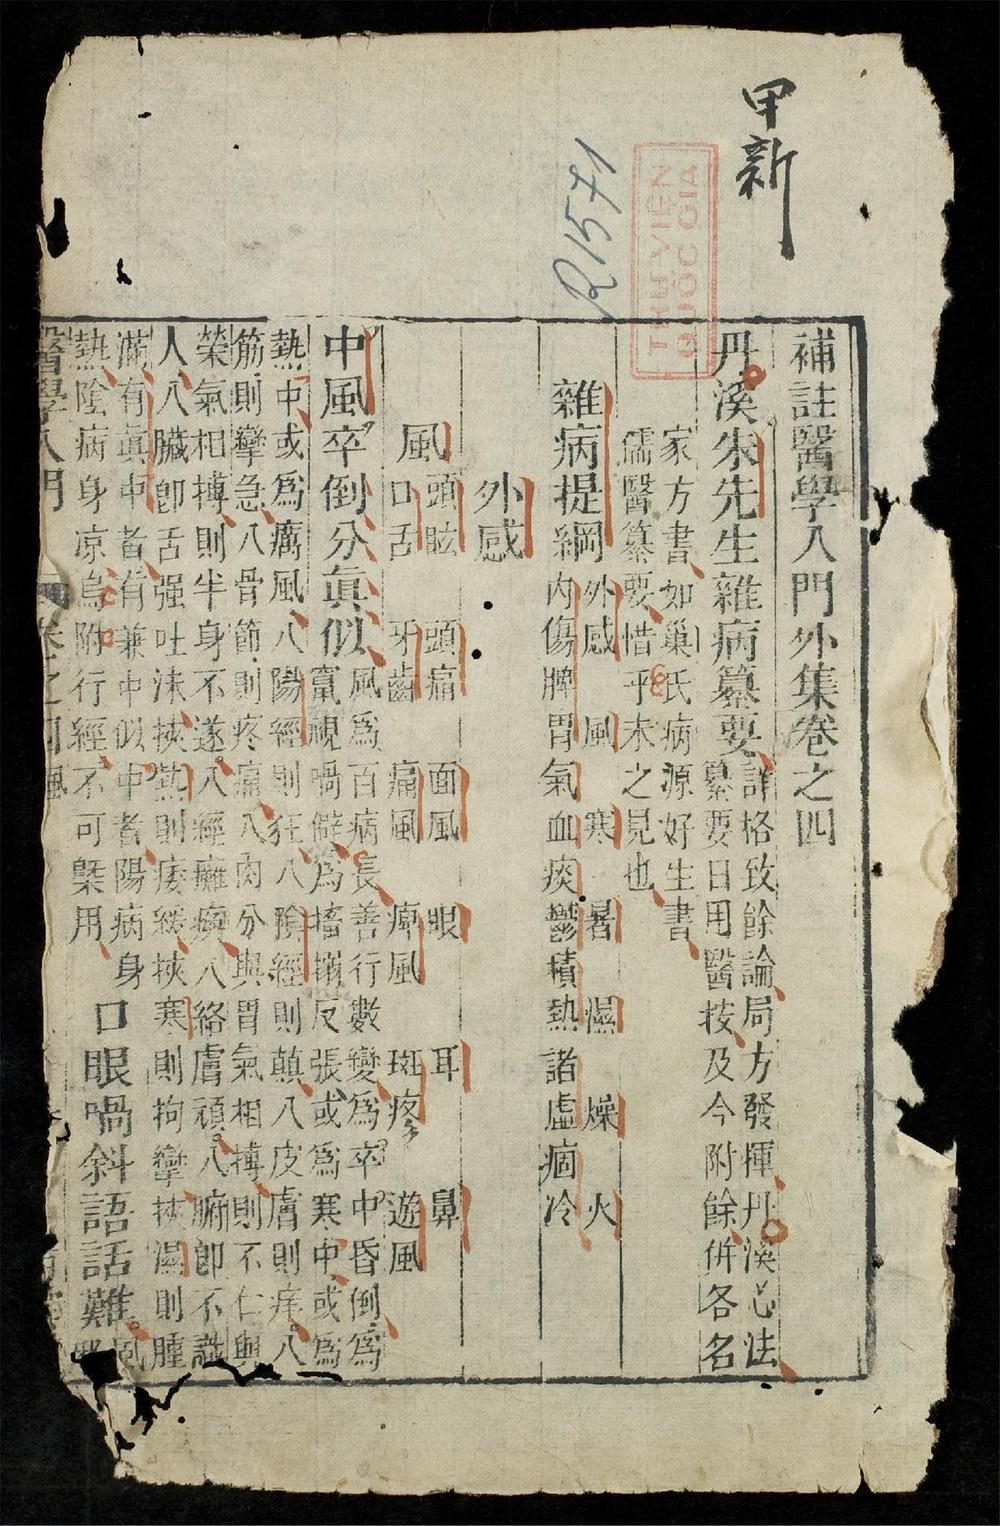 甲新
R1571
THƯ VIỆN
QUỐC GIA
補註醫學入門外集卷之四
丹溪朱先生雜病纂要
詳格致餘論局方發揮丹溪心法
纂要日用醫技及今附餘併各名
家方書如巢氏病源好生書
儒醫纂要惜乎未之見也
雜病提綱
外感 風 寒 暑 濕 燥 火
內傷脾胃氣血痰鬱積熱諸虛痼冷
外感
風
頭眩 頭痛 面風 眼 耳 鼻
口舌 牙齒 痛風 痺風 斑疹 遊風
中風卒倒分眞似
風爲百病長善行數變爲卒中昏倒爲
竄視喎僻爲搐搦反張或爲寒中或爲
熱中或爲癘風入陽經則狂入陰經則顛入皮膚則痒入
筋則攣急入骨節則疼痛入肉分與胃氣相摶則不仁與
榮氣相摶則半身不遂入經癱瘓入絡膚頑入腑卽不識
人入臟卽舌强吐沫挾熱則痿緩挾寒則拘攣挾濕則腫
滿有眞中者有兼中似中者陽病身
熱陰病身凉烏附行經不可槩用
口眼喎斜語話難
風
醫學入門
卷之四風